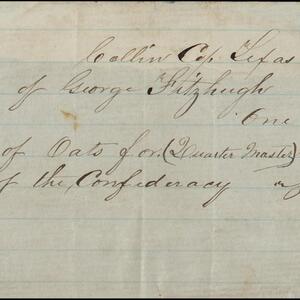 Collin Co. Texas
of George Fitzhugh
One
of Oats for (Quarter Master)
of the Confederacy